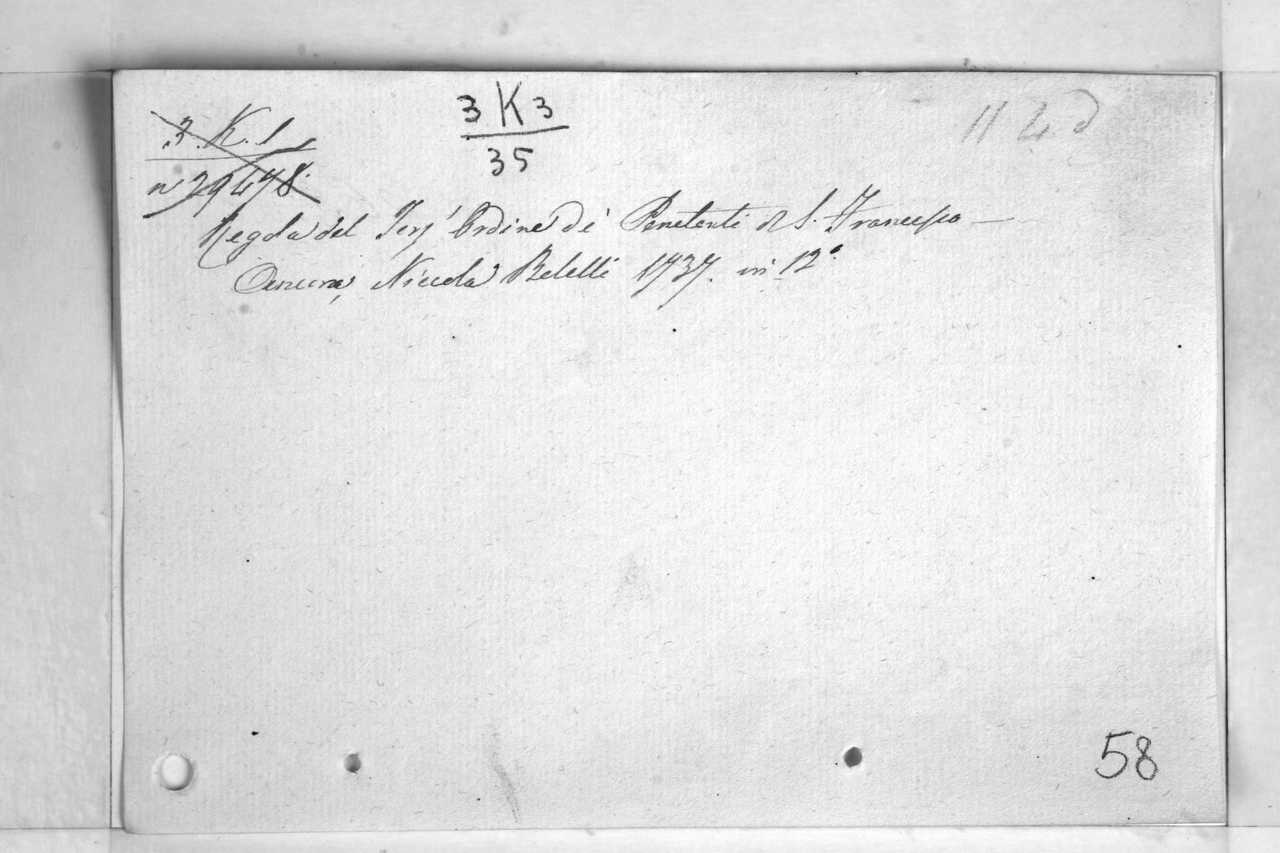 3 K 3
35
3. K. 1
n° 29478.
114 d
Regola del Terz' Ordine de' Penitenti di S. Francesco —
Ancona, Niccola Belelli 1737. in 12°
58